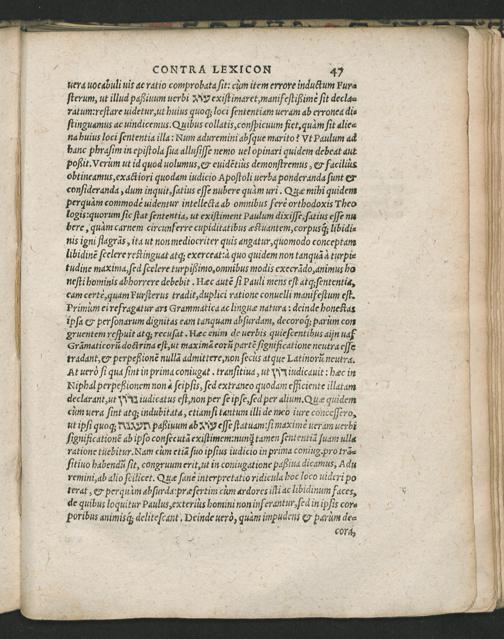 CONTRA LEXICON 47
uera uocabuli uis ac ratio comprobata sit: cùm item errore inductum Fur⸗
sterum, ut illud paßiuum uerbi עוג existimaret, manifestißimè sit decla⸗
ratum: restare uidetur, ut huius quoq; loci sententiam ueram ab erronea di⸗
stinguamus ac uindicemus. Quibus collatis, conspicuum fiet, quàm sit alie⸗
na huius loci sententia illa: Num aduremini absque marito? Vt Paulum ad
hanc phrasim in epistola sua allusisse nemo uel opinari quidem debeat aut
poßit. Verùm ut id quod uolumus, & euidẽtius demonstremus, & faciliùs
obtineamus, exactiori quodam iudicio Apostoli uerba ponderanda sunt &
consideranda, dum inquit, satius esse nubere quàm uri. Quæ mihi quidem
perquàm commodè uidentur intellecta ab omnibus ferè orthodoxis Theo
logis: quorum sic stat sententia, ut existiment Paulum dixisse, satius esse nu
bere, quàm carnem circunferre cupiditatibus æstuantem, corpusq́; libidi⸗
nis igni flagrãs, ita ut non mediocriter quis angatur, quomodo conceptam
libidinẽ scelere restinguat atq; exerceat: à quo quidem non tanquã à turpi⸗
tudine maxima, sed scelere turpißimo, omnibus modis execrãdo, animus ho
nesti hominis abhorrere debebit. Hæc autẽ si Pauli mens est atq; sentẽtia,
eam certè, quam Fursterus tradit, duplici ratione conuelli manifestum est.
Primùm ei refragatur ars Grammatica ac linguæ natura: deinde honestas
ipsa & personarum dignitas eam tanquam absurdam, decoroq́; parùm con
gruentem respuit atq; recusat. Hæc enim de uerbis quiescentibus
Grãmaticorũ doctrina est, ut maximã eorũ partẽ significatione neutra esse
tradant, & perpeßionẽ nullã admittere, non secùs atque Latinorũ neutra.
At uerò si qua sint in prima coniugat. transitiua, ut דון iudicauit: hæc in
Niphal perpeßionem non à seipsis, sed extraneo quodam efficiente illatam
declarant, ut נדון iudicatus est, non per se ipse, sed per alium. Quæ quidem
cùm uera sint atq; indubitata, etiamsi tantum illi de meo iure concessero,
ut ipsi quoq; תעגנה paßiuum ab עוג esse statuam: si maximè ueram uerbi
significationẽ ab ipso consecutã existimem: nunq̃ tamen sententiã suam ulla
ratione tuebitur. Nam cùm etiã suo ipsius iudicio in prima coniug. pro trã⸗
sitiuo habendũ sit, congruum erit, ut in coniugatione paßiua dicamus, Adu
remini, ab alio scilicet. Quæ sanè interpretatio ridicula hoc loco uideri po
terat, & perquàm absurda: præsertim cùm ardores isti ac libidinum faces,
de quibus loquitur Paulus, exteriùs homini non inferantur, sed in ipsis cor⸗
poribus animisq́; delitescant. Deinde uerò, quàm impudens & parùm de⸗
cora,